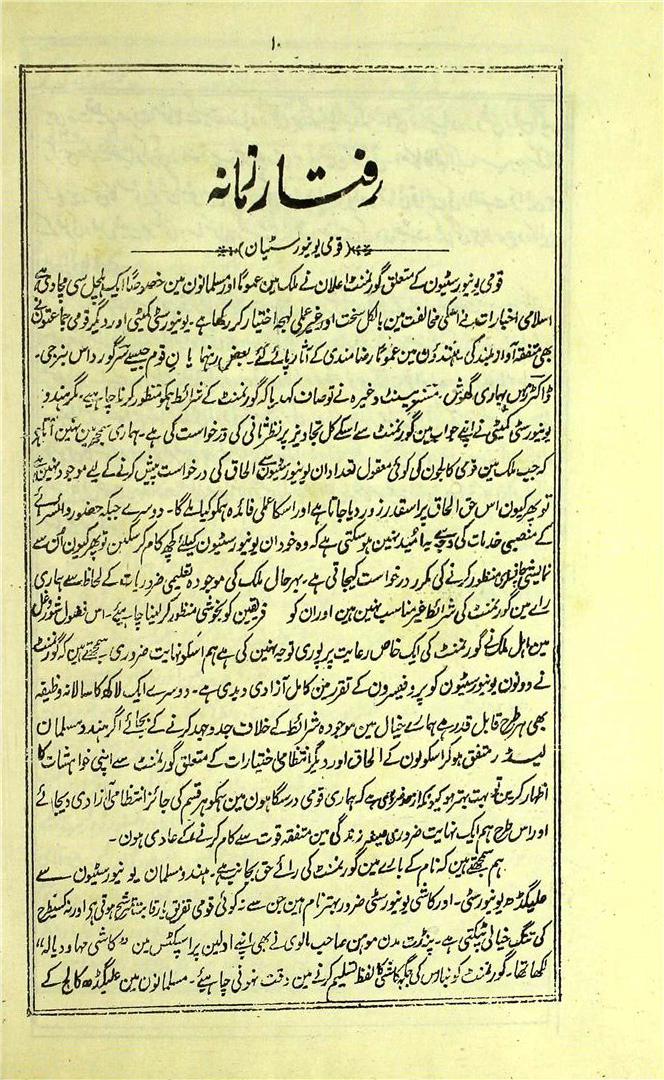 ۱۰
رفتار زمانہ
(قومی یونیورسٹیان)
قومی یونیورسٹیون کے متعلق گورنمنٹ اعلان نے ملک مین عموماً اور مسلمانون مین خصوصاً ایک ہلچل سی مچا دی ہے
اسلامی اخبارات نے اسکی مخالفت مین بالکل سخت اور غیر عملی لہجہ اختیار کر رکھا ہے۔ یونیورسٹی کمیٹی اور دیگر قومی جماعتون نے
بھی متفقہ آواز بلند کی۔ ہندؤن مین عموماً رضامندی کے آثار پائے گئے۔ بعض رہنما یان قوم جیسے سر گورو داس بنرجی۔
ڈاکٹر راس بہاری گھوش۔ وغیرہ نے تو صاف کہدیا کہ گورنمنٹ کے شرائط ہمکو منظور کرنا چاہیے۔ مگر ہندو
یونیورسٹی کمیٹی نے اپنے جواب مین گورنمنٹ سے اسکے کل تجاویز پر نظر ثانی کی درخواست کی ہے۔ ہماری سمجھ مین نہین آتا ہے
کہ جب ملک مین قومی کالجون کی کوئی معقول تعداد ان یونیورسٹیون سے الحاق کی درخواست پیش کرنے کے لیے موجود نہین ہے
تو پھر کیون اس حق الحاق پر اسقدر زور دیا جاتا ہے اور اسکا عملی فائدہ ہمکو کیا ملے گا۔ دوسرے جبکہ حضور وائسرائے
کے منصبی خدمات کی وجہ سے یہ امید نہین ہو سکتی ہے کہ وہ خود ان یونیورسٹیون کیلئے کچھ کام کر سکین تو پھر کیون اُن سے
نمایشی چانسلری منظور کرنے کی مکرر درخواست کیجاتی ہے۔ بہر حال ملک کی موجودہ تعلیمی ضروریات کے لحاظ سے ہماری
رائے مین گورنمنٹ کی شرائط غیر مناسب نہین ہین اور ان کو فریقین کو بخوشی منظور کر لینا چاہیئے۔ اس فضول شور و غل
مین اہل ملک نے گورنمنٹ کی ایک خاص رعایت پر پوری توجہ نہین کی ہے ہم اسکو نہایت ضروری سمجھتے ہین کہ گورنمنٹ
نے دونون یونیورسٹیون کو پروفیسرون کے تقرر مین کامل آزادی دیدی ہے۔ دوسرے ایک لاکھ کا سالانہ وظیفہ
بھی ہر طرح قابل قدر ہے ہمارے خیال مین موجودہ شرائط کے خلاف جد و جہد کرنے کے بجائے اگر ہندو مسلمان
لیڈر متفق ہو کر اسکولون کے الحاق اور دیگر انتظامی اختیارات کے متعلق گورنمنٹ سے اپنی خواہشات کا
اظہار کرین تو بہت بہتر ہو کیونکہ از حد ضروری ہے کہ ہماری قومی درسگاہون مین ہمکو ہر قسم کی جائز انتظامی آزادی دیجائے
اور اس طرح ہم ایک نہایت ضروری صیغہ زندگی مین متفقہ قوت سے کام کرنے کے عادی ہون۔
ہم سمجھتے ہین کہ نام کے بارے مین گورنمنٹ کی رائے حق بجانب ہے، ہندو مسلمان یونیورسٹیون سے
علیگڈھ یونیورسٹی۔ اور کاشی یونیورسٹی ضرور بہتر نام ہین جن سے نہ کوئی قومی تفریق مترشح ہوتی ہے اور نہ کسیطرح
کی تنگ خیالی ٹپکتی ہے۔ پنڈت مدن موہن صاحب مالوی نے بھی اپنے اولین پراسپکٹس مین ״کاشی مہا ودیالہ״
لکھا تھا۔ گورنمنٹ کو بنارس کی جگہ کاشی کا لفظ تسلیم کرنے مین دقت نہونی چاہیئے۔ مسلمانون مین علیگڈھ کالج کے